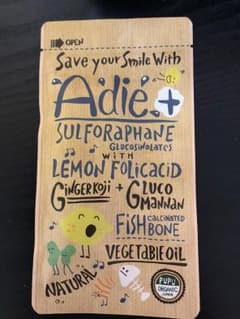 OPEN
Save your Smile With
Adie+
SULFORAPHANE
GLUCOSINOLATES
WITH
LEMON FOLICACID
GINGERKOJI + GLUCO
MANNAN
FISH CALCINATED
BONE
VEGETABLE OIL
NATURAL
PUPU
ORGANIC